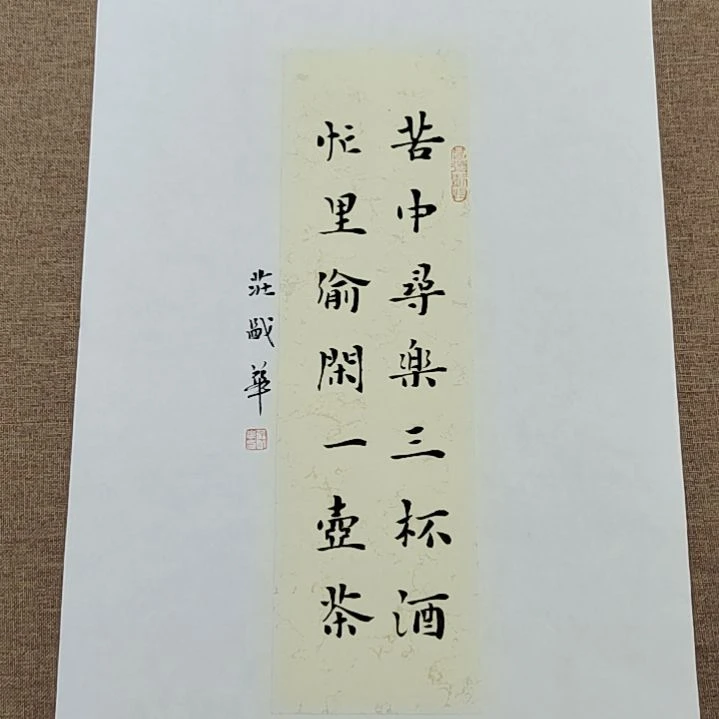 苦中尋楽三杯酒
忙里偷閑一壺茶
莊
華